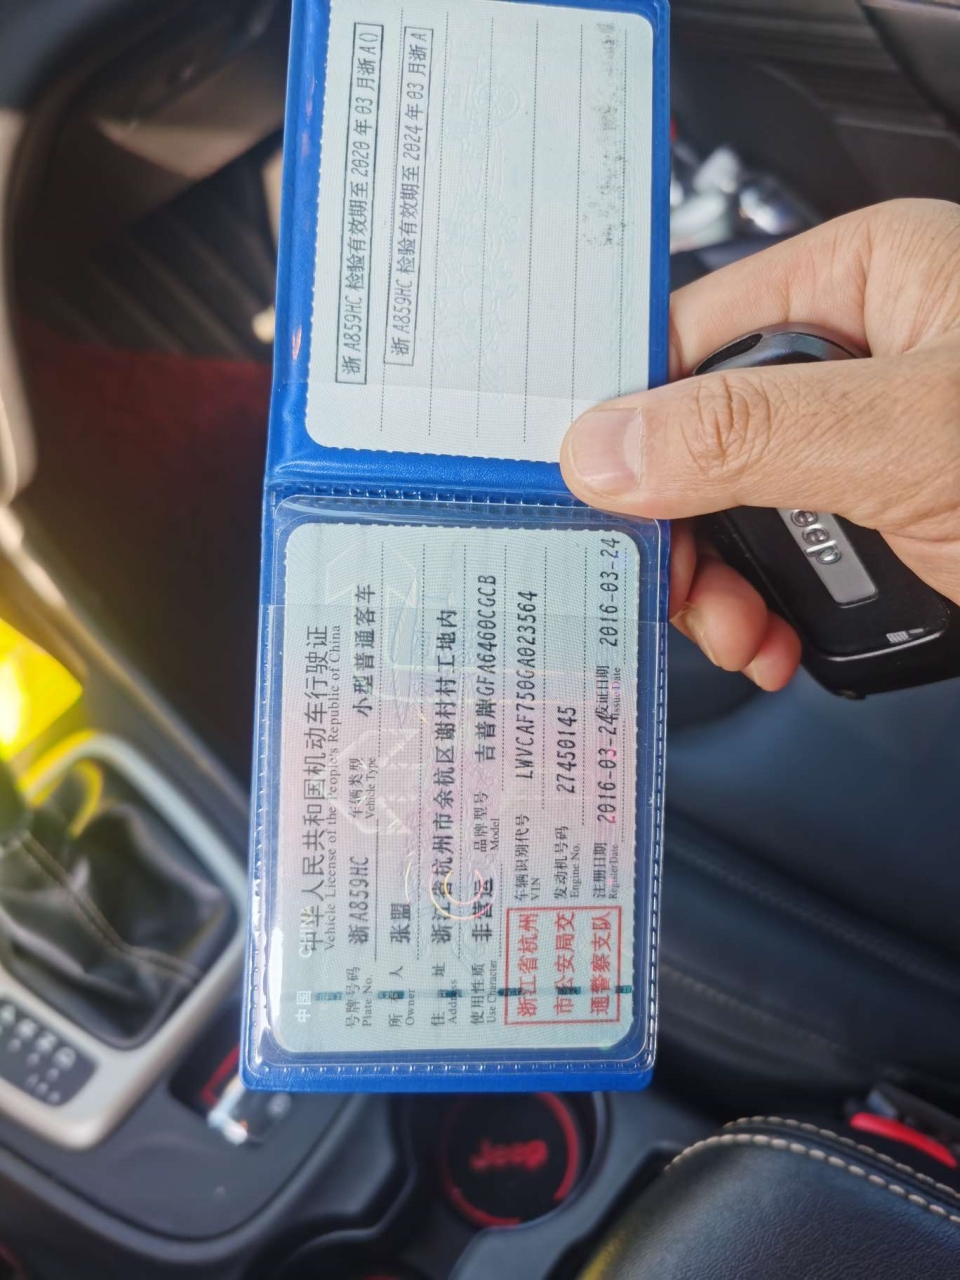 浙A859HC 检验有效期至2020年03月浙A()
浙A859HC 检验有效期至2024年03月浙A
中国 CHINA
中华人民共和国机动车行驶证
Vehicle License of the People's Republic of China
号牌号码 浙A859HC 车辆类型 小型普通客车
Plate No. Vehicle Type
所有人 张盟
Owner
住址 浙江省杭州市余杭区谢村村工地内
Address
使用性质 非营运 品牌型号 吉普牌GFA6460CGCB
Use Character Model
浙江省杭州
市公安局交
通警察支队
车辆识别代号 LWVCAF750GA023564
VIN
发动机号码 27450145
Engine No.
注册日期 2016-03-24 发证日期 2016-03-24
Register Date Issue Date
Jeep
Jeep